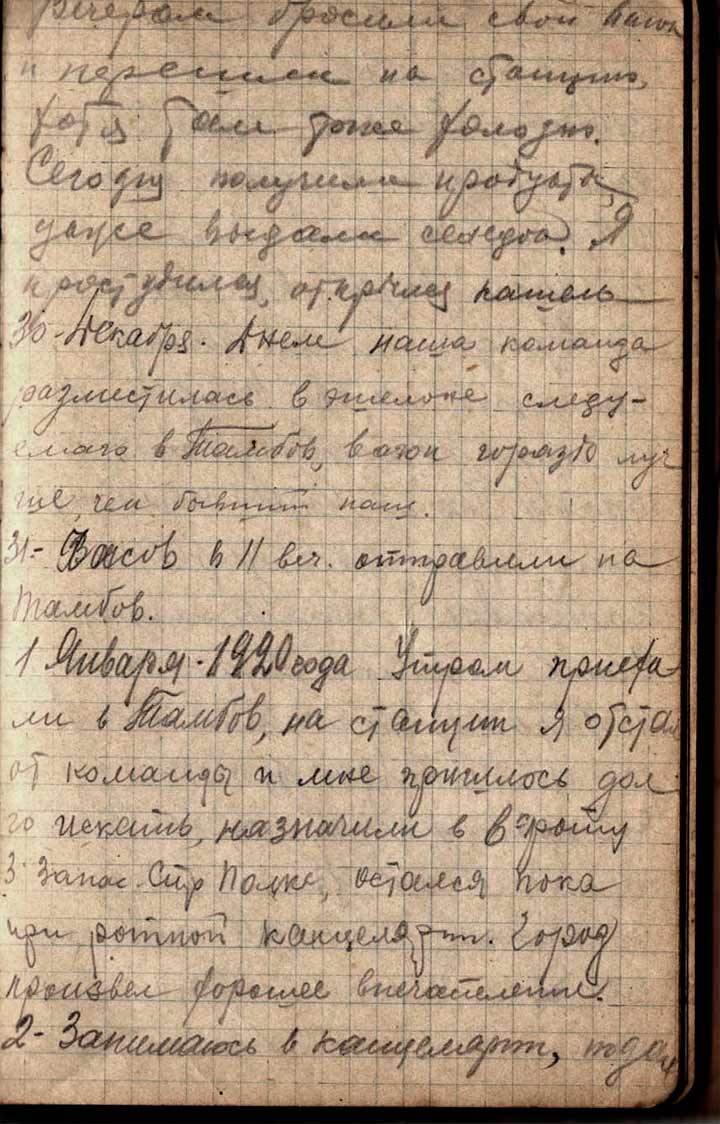 Вечером бросили свой вагон
и перешли на станцию,
хотя там тоже холодно.
Сегодня получили продукты,
даже выдали селедки. Я
простудился, открылся кашель
30 - Декабря. Днем наша команда
разместилась в эшелоне следу-
емаго в Тамбов, вагон гораздо луч
ше, чем бывший наш.
31 - Часов в 11 веч. отправили на
Тамбов.
1 Января - 1920 года Утром приеха
ли в Тамбов, на станции я отстал
от команды и мне пришлось дол
го искать, назначили в роту
3 Запас. Стр Полка, остался пока
при ротной канцелярии. Город
произвел хорошее впечатление.
2 - Занимаюсь в канцелярии,